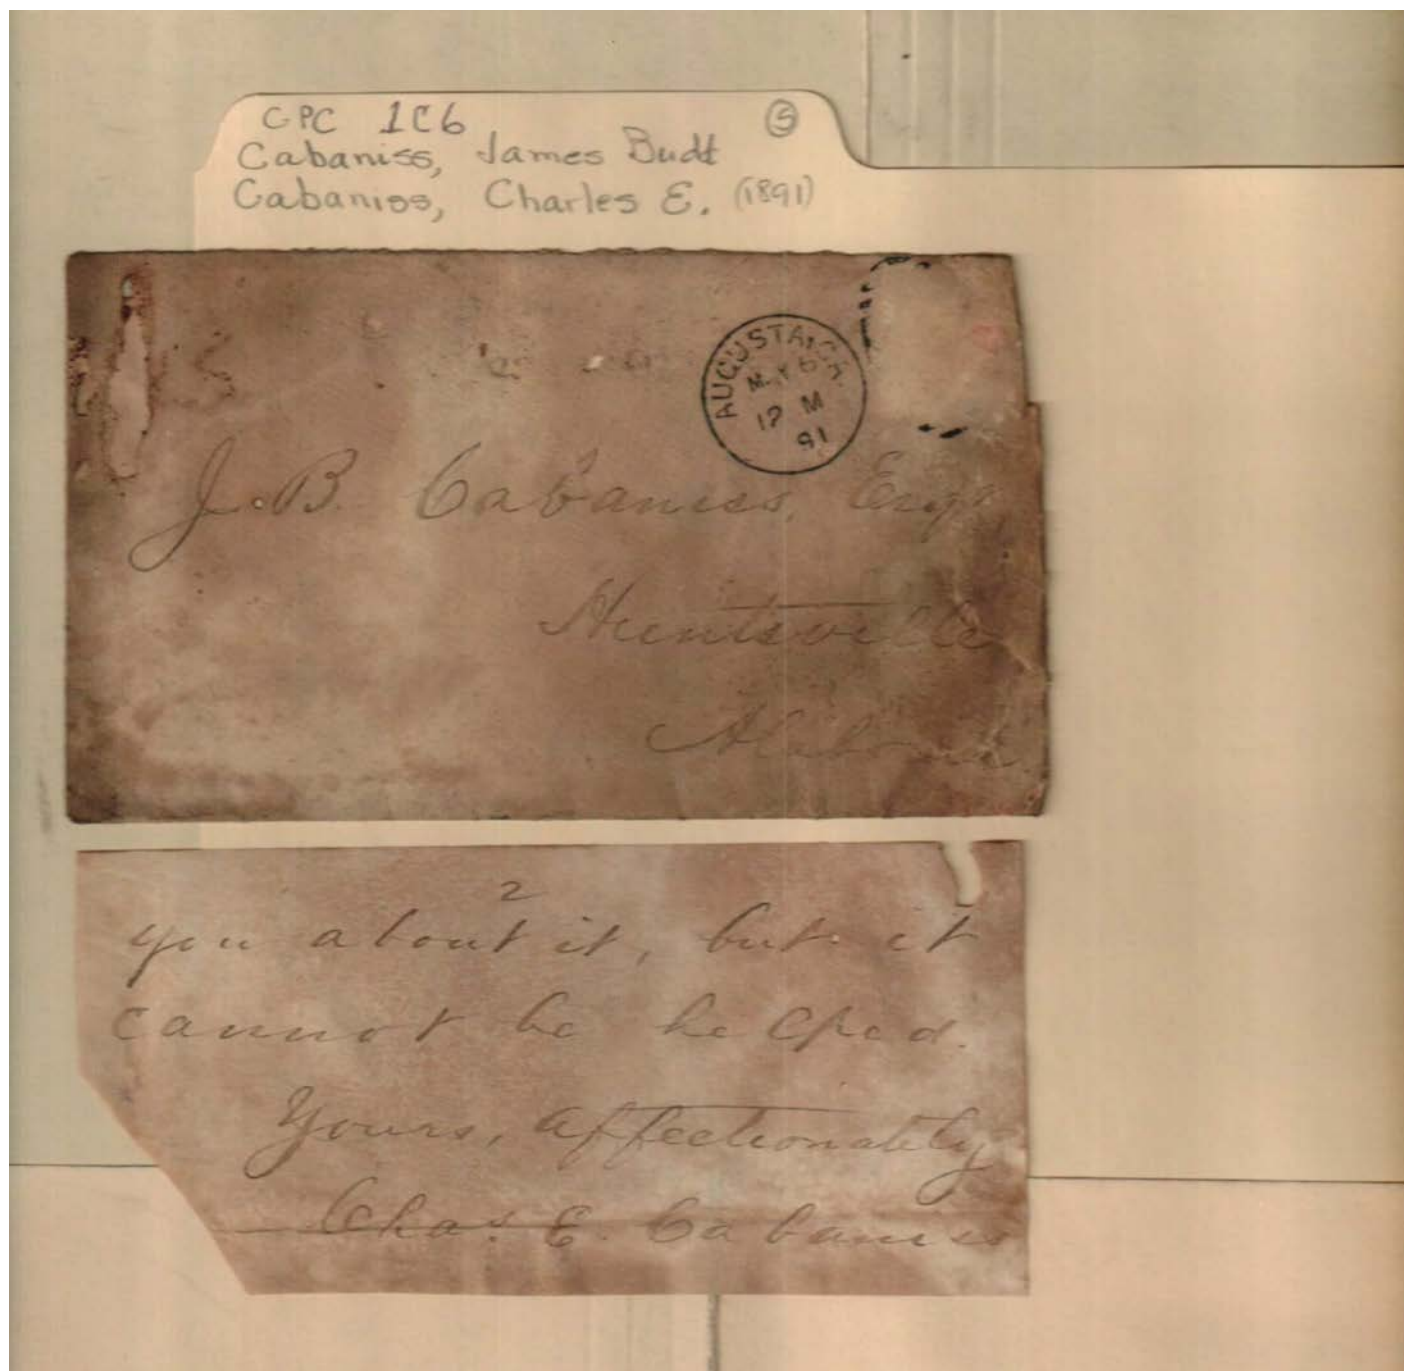 CPC 1C6
5
Cabaniss, James Budt
Cabaniss, Charles E. (1891)
AUGUSTA, GA.
6
M
91
J. B. Cabaniss, Esqr,
Huntsville
Alabama.
2
you about it, but it
cannot be helped.
Yours, affectionately
Chas. E. Cabaniss